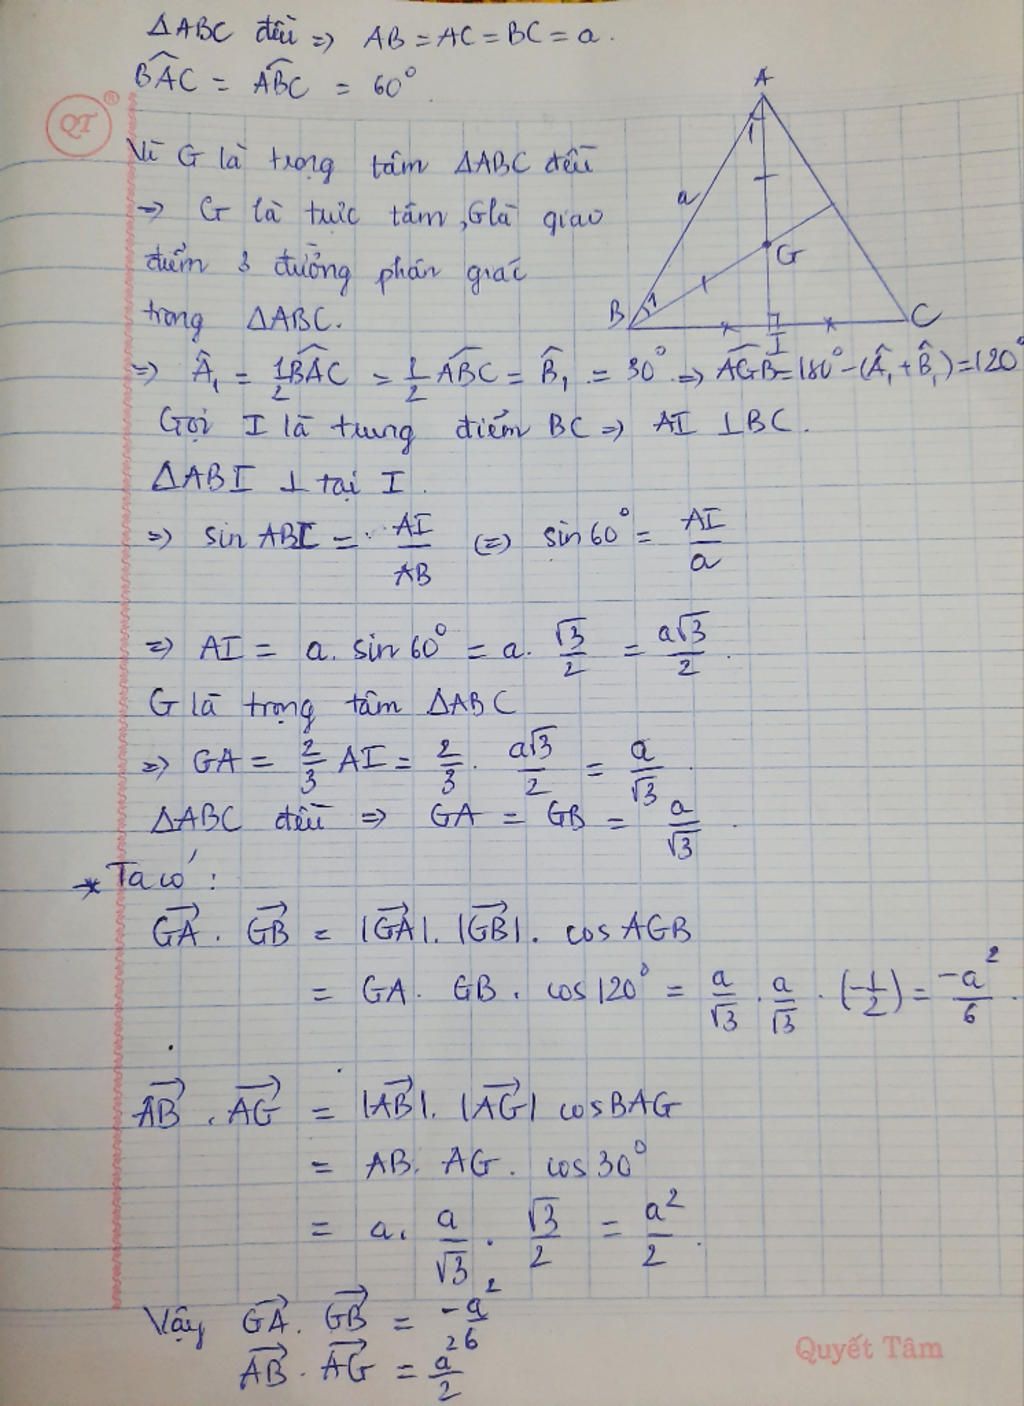 ΔABC đều => AB = AC = BC = a.
BÂC = ABC = 60°
QT
®
Vì G là trọng tâm ΔABC đều
=> G là trực tâm, G là giao
điểm 3 đường phân giác
trong ΔABC.
A
1
a
G
B
1
I
C
=> Â₁ = 1/2 BÂC = 1/2 ABC = B̂₁ = 30° => AGB = 180° - (Â₁ + B̂₁) = 120°
Gọi I là trung điểm BC => AI ⊥ BC.
ΔABI ⊥ tại I.
=> sin ABI = AI/AB (=) sin 60° = AI/a
=> AI = a. sin 60° = a. √3/2 = a√3/2.
G là trọng tâm ΔABC
=> GA = 2/3 AI = 2/3 . a√3/2 = a/√3.
ΔABC đều => GA = GB = a/√3.
* Ta có:
GA→ . GB→ = |GA→|. |GB→|. cos AGB
= GA. GB. cos 120° = a/√3 . a/√3 . (-1/2) = -a²/6.
AB→ . AG→ = |AB→|. |AG→| cos BAG
= AB. AG. cos 30°
= a. a/√3 . √3/2 = a²/2.
Vậy GA→. GB→ = -a²/6
AB→ . AG→ = a²/2
Quyết Tâm